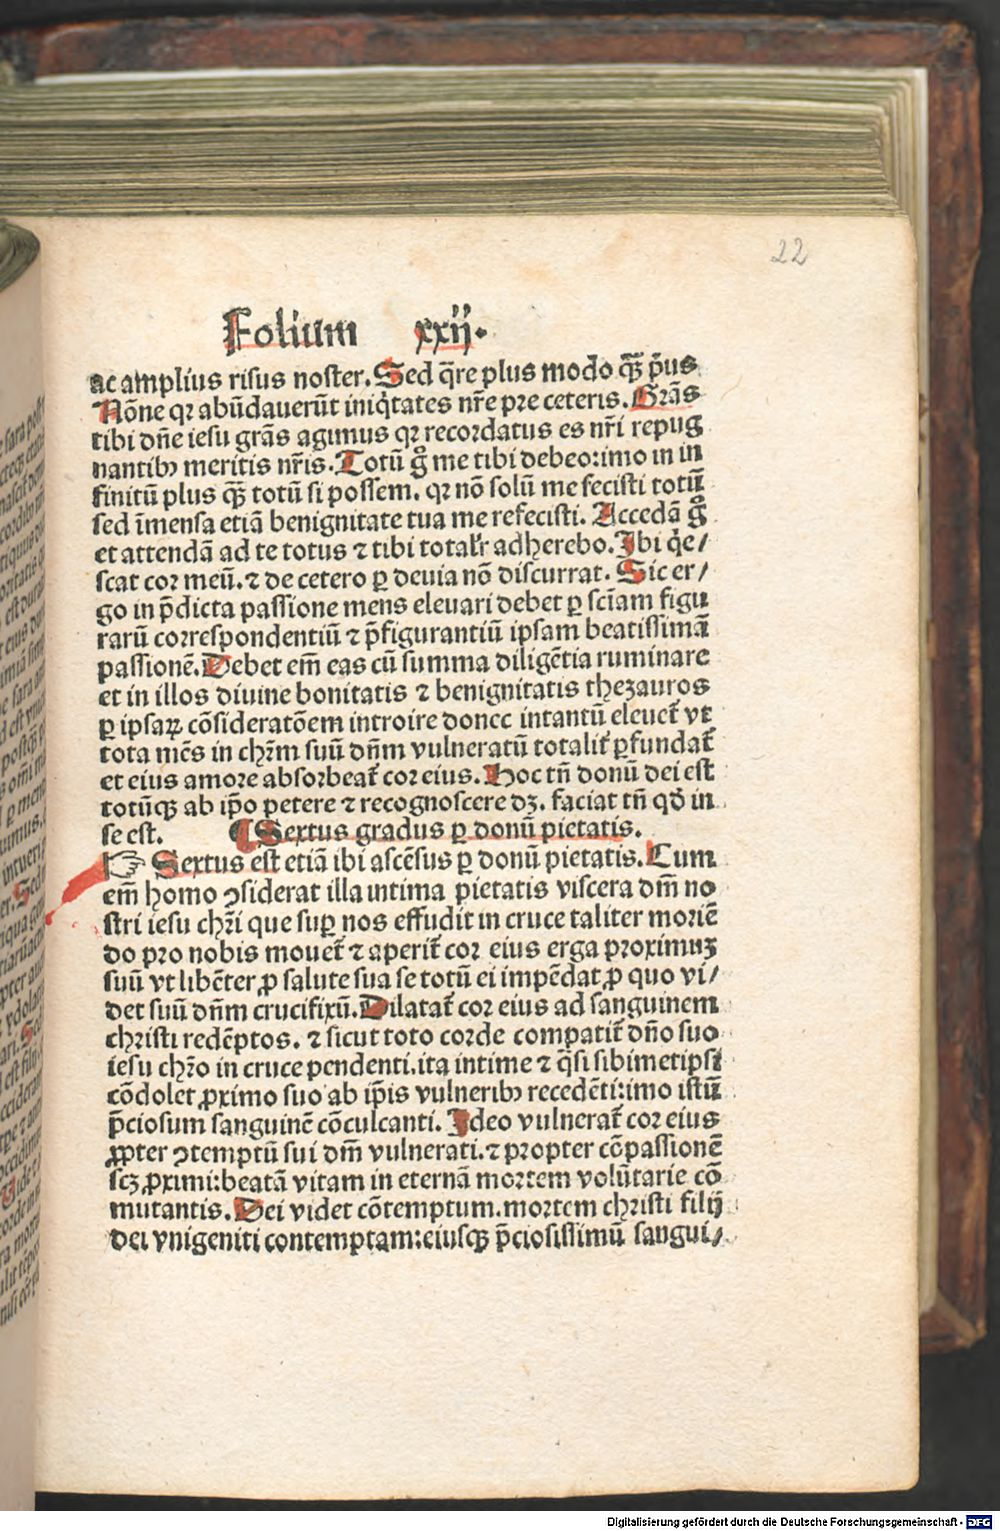 22
Folium xxij.
ac amplius risus noster. Sed q̄re plus modo qȝ̄ p̄us
Nōne qꝛ abūdauerūt iniq̇tates nr̄e pre ceteris. Grās
tibi dn̄e iesu grās agimus qꝛ recordatus es nr̄i repug
nantibꝰ meritis nr̄is. Totū g̊ me tibi debeo: imo in in
finitū plus qȝ̄ totū si possem. qꝛ nō solū me fecisti totū
sed īmensa etiā benignitate tua me refecisti. Accedā g̊
et attendā ad te totus ⁊ tibi total'r adherebo. Ibi q̇e/
scat cor meū. ⁊ de cetero ꝑ deuia nō discurrat. Sic er/
go in p̄dicta passione mens eleuari debet ꝑ sciam̄ figu
rarū correspondentiū ⁊ p̄figurantiū ipsam beatissimā
passionē. Debet em̄ eas cū summa diligētia ruminare
et in illos diuine bonitatis ⁊ benignitatis thezauros
ꝑ ipsaꝝ cōsideratōem introire donec intantū eleuet̄ vt
tota mēs in chr̄m suū dn̄m vulneratū totalit̄ ꝑfundat̄
et eius amore absorbeat̄ cor eius. Hoc tn̄ donū dei est
totūqꝫ ab ip̄o petere ⁊ recognoscere dꝫ. faciat tn̄ qd̄ in
se est. ¶ Sextus gradus ꝑ donū pietatis.
☞ Sextus est etiā ibi ascēsus ꝑ donū pietatis. Cum
em̄ homo ꝯsiderat illa intima pietatis viscera dn̄i no
stri iesu chr̄i que suꝑ nos effudit in cruce taliter moriē
do pro nobis mouet̄ ⁊ aperit̄ cor eius erga proximuꝫ
suū vt libēter ꝓ salute sua se totū ei impēdat ꝓ quo vi/
det suū dn̄m crucifixū. Dilatat̄ cor eius ad sanguinem
christi redēptos. ⁊ sicut toto corde compatit̄ dn̄o suo
iesu chr̄o in cruce pendenti. ita intime ⁊ q̄si sibimetipsi
cōdolet ꝓximo suo ab ip̄is vulneribꝰ recedēti: imo istū
p̄ciosum sanguinē cōculcanti. Ideo vulnerat̄ cor eius
ꝓpter ꝯtemptū sui dn̄i vulnerati. ⁊ propter cōpassionē
scꝫ ꝓximi: beatā vitam in eternā mortem volūtarie cō
mutantis. Dei videt cōtemptum. mortem christi filij
dei vnigeniti contemptam: eiusqꝫ p̄ciosissimū sangui/
Digitalisierung gefördert durch die Deutsche Forschungsgemeinschaft - DFG